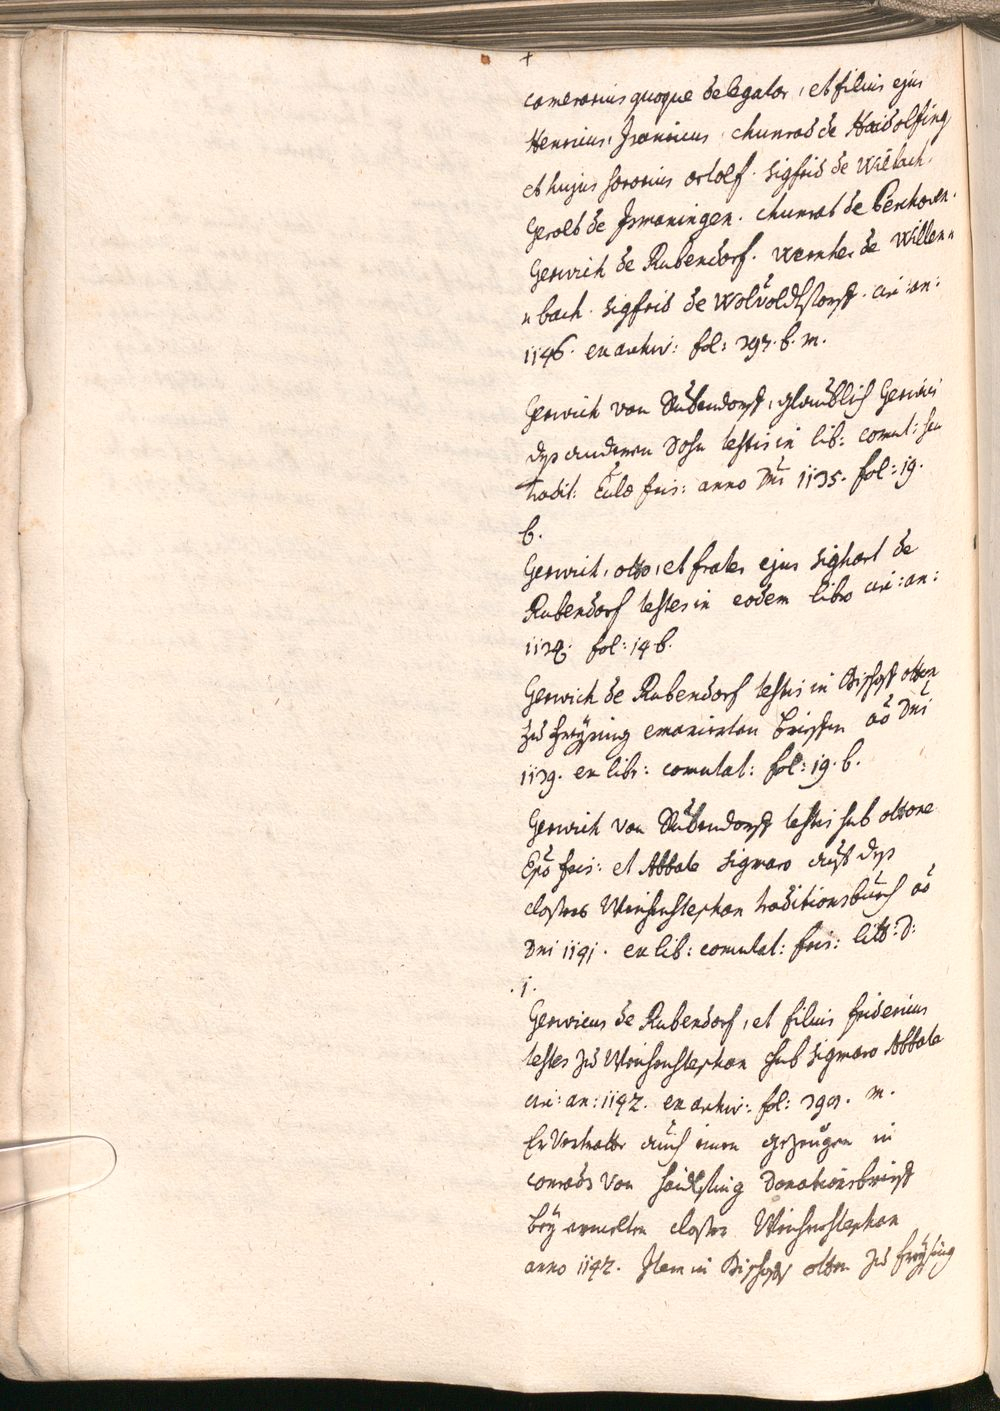 +
camerarius quoque delegator, et filius ejus
Henricus, Francicus chunrad de Haidolfing
et hujus sororius ortolf. Sigfrid de Wilbach.
Gerold de Jsmaningen. chunrat de Perchoven.
Gerwich de Rubendorf. Wernher de Willen=
=bach. Sigfrid de Wolvoldstorf. circ: an:
1146. ex archiv: fol: 397. b. m.
Gerwich von Rŭbendorf, glaŭblich Gerwici
des anderen Sohn testis in lib: comut: seu
tradit: Eccle fris: anno Dni 1135. fol: 19.
b.
Gerwich, otto, et frater ejus Sighart de
Rubendorf testes in eodem libro circ: an:
fol: 14 b.
Gerwich de Rubendorf testis in Bischoff otten
zu Freÿsing emanierten briefen ao Dni
1139. ex libr: comutat: fol: 19. b.
Gerwich von Rŭbendorf testis sub ottone
Epo fris: et Abbate Sigmaro auß des
closters Weihenstephan traditionsbŭch ao
Dni 1141. ex lib: comutat: fris: litt: D:
.1.
Gerwicus de Rubendorf, et filius fridericus
testes zu Weihenstephan sub Sigmaro Abbate
circ: an: 1142. ex archiv: fol: m.
Er Vertratte aŭch einen gezeŭgen in
conrads von Haidlfing Donationsbrieff
beÿ ermelten closter Weihenstephan
anno 1142. Item in Bischoffs otten zu freÿsing